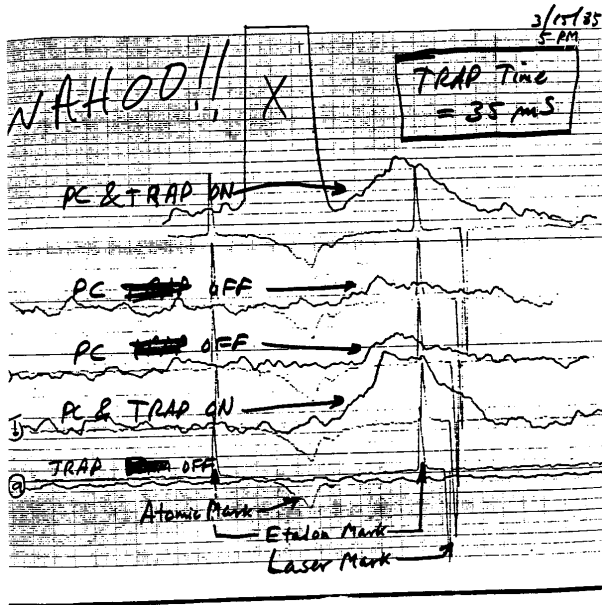 3/15/85
5 PM
WAHOO!!
X
TRAP Time
= 35 mS
PC & TRAP ON
PC OFF
PC OFF
PC & TRAP ON
b
TRAP OFF
a
Atomic Mark
Etalon Mark
Laser Mark